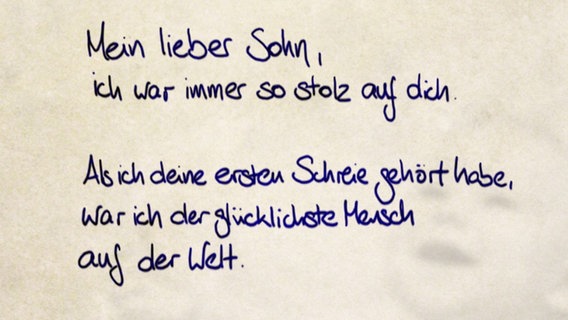 Mein lieber Sohn,
ich war immer so stolz auf dich.
Als ich deine ersten Schreie gehört habe,
war ich der glücklichste Mensch
auf der Welt.